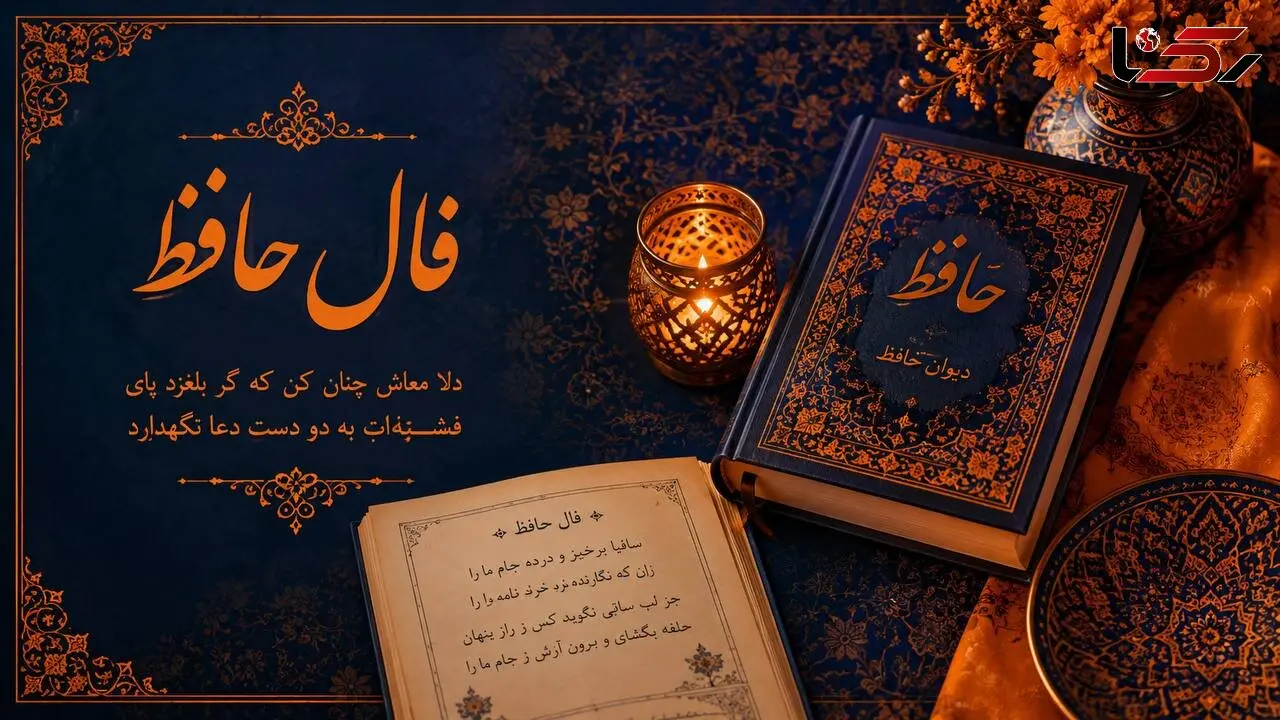 رکنا
فال حافظ
دلا معاش چنان کن که گر بلغزد پای
به دو دست دعا تگهدارد
حافظ
دیوان حافظ
فال حافظ
ساقیا برخیز و درده جام ما را
زان که نگارنده نزد خرند نامه را
جز لب ساقی نگوید کس ز راز پنهان
حلقه بگشای و برون آرش ز جام ما را